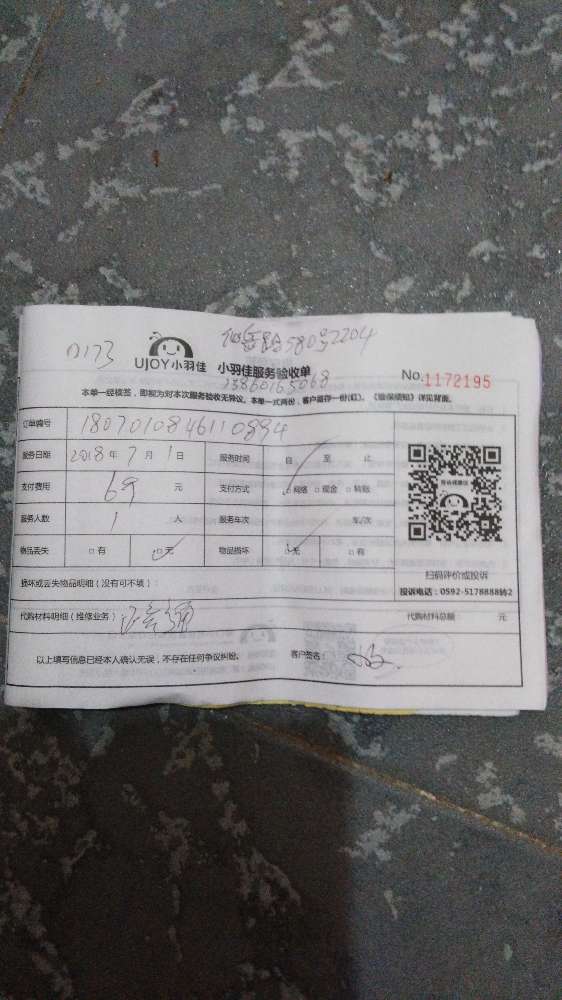 0173
58092204
UJOY小羽佳 小羽佳服务验收单 No.1172195
13860165068
本单一经核签，即视为对本次服务验收无异议。本单一式两份，客户留存一份(红)。《维保须知》详见背面。
订单编号 1807010846110894
服务日期 2018年7月1日 服务时间 自 至 止
支付费用 69 元 支付方式 □网络 □现金 □转账
服务人数 1 人 服务车次 车/次
物品丢失 □有 □无 物品损坏 □无 □有
扫码评价或投诉
损坏或丢失物品明细（没有可不填）：
投诉电话：0592-5178888转2
代购材料明细（维修业务） 代购材料总额 元
以上填写信息已经本人确认无误，不存在任何争议纠纷。 客户签名：